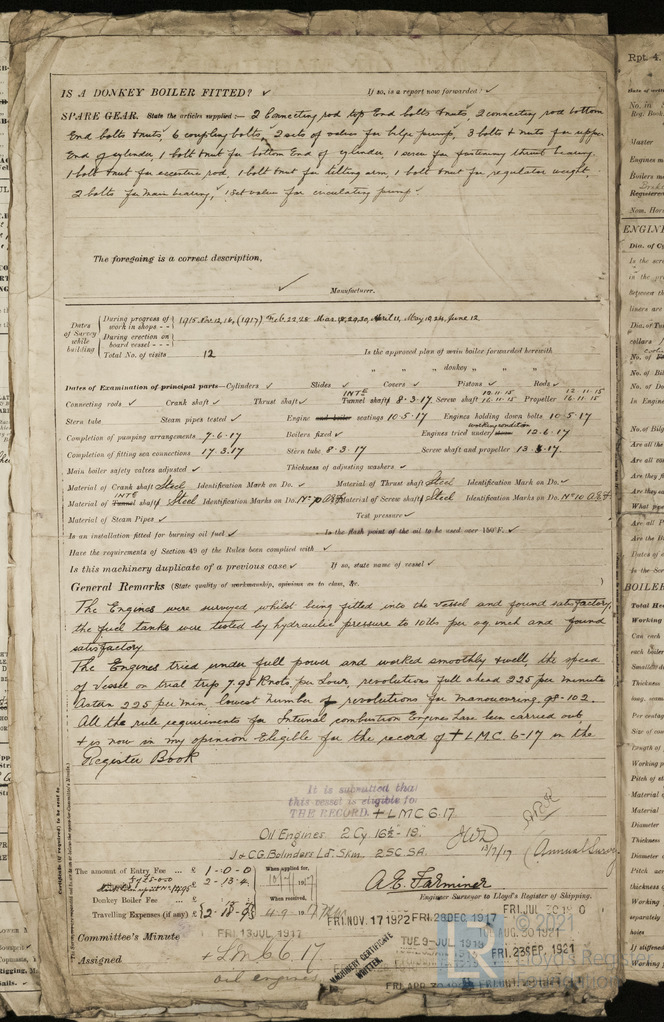 IS A DONKEY BOILER FITTED? ✓ If so, is a report now forwarded? ✓
SPARE GEAR. State the articles supplied:— 2 Connecting rod top End bolts & nuts, 2 connecting rod bottom
End bolts & nuts, 6 coupling bolts, 2 sets of valves for bilge pump, 3 bolts & nuts for upper
End of cylinder, 1 bolt & nut for bottom End of cylinder, 1 screw for fastening thrust bearing,
1 bolt & nut for eccentric rod, 1 bolt & nut for tilting arm, 1 bolt & nut for regulator weight,
2 bolts for main bearing, 1 set valves for circulating pump ✓
The foregoing is a correct description,
✓ Manufacturer.
Dates of Survey while building
During progress of work in shops - - 1915 Nov. 12, 16, (1917) Feb. 22, 28 Mar. 8, 29, 30, April 11, May 10, 24, June 12
During erection on board vessel - - -
Total No. of visits 12
Is the approved plan of main boiler forwarded herewith
" " " donkey " " "
Dates of Examination of principal parts—Cylinders ✓ Slides ✓ Covers ✓ Pistons ✓ Rods ✓
Connecting rods ✓ Crank shaft ✓ Thrust shaft ✓ INTR Tunnel shaft 8-3-17 Screw shaft 12.11.15 16.11.15 Propeller 12.11.15 16.11.15
Stern tube Steam pipes tested ✓ Engine and boiler seatings 10-5-17 Engines holding down bolts 10-5-17
Completion of pumping arrangements 7-6-17 Boilers fixed ✓ Engines tried under working condition steam 12-6-17
Completion of fitting sea connections 17.3.17 Stern tube 8-3-17 Screw shaft and propeller 13-3-17
Main boiler safety valves adjusted ✓ Thickness of adjusting washers ✓
Material of Crank shaft Steel Identification Mark on Do. ✓ Material of Thrust shaft Steel Identification Mark on Do. ✓
Material of INTR Tunnel shafts Steel Identification Marks on Do. Material of Screw shafts Steel Identification Marks on Do. No 10 A.E.F
Material of Steam Pipes ✓ Test pressure ✓
Is an installation fitted for burning oil fuel ✓ Is the flash point of the oil to be used over 150°F. ✓
Have the requirements of Section 49 of the Rules been complied with ✓
Is this machinery duplicate of a previous case ✓ If so, state name of vessel ✓
General Remarks (State quality of workmanship, opinions as to class, &c. )
The Engines were surveyed whilst being fitted into the vessel and found satisfactory,
the fuel tanks were tested by hydraulic pressure to 10 lbs per sq inch and found
satisfactory.
The Engines tried under full power and worked smoothly & well, the speed
of vessel on trial trip 7.95 Knots per hour, revolutions full ahead 225 per minute
Astern 225 per min, lowest number of revolutions for manoeuvring 98-102.
All the rule requirements for Internal combustion Engines have been carried out
& is now in my opinion Eligible for the record of + L.M.C. 6-17 in the
Register Book
It is submitted that
this vessel is eligible for
THE RECORD. + LMC 6.17
Oil Engines 2 Cy 16½ - 18
J & C.G. Bolinders Ld. Skm. 2SC. SA.
13/7/17 (Annual Survey
The amount of Entry Fee .. £ 1-0-0 When applied for,
2-13-4 10-7-1917
Donkey Boiler Fee .. .. £ When received,
Travelling Expenses (if any) £ 2-18-9
A. E. Farminer
Engineer Surveyor to Lloyd's Register of Shipping.
Committee's Minute FRI. 13 JUL. 1917
Assigned + LMC 6.17
oil engines
FRI. NOV. 17 1922 FRI. 28 DEC. 1917
TUE. 9-JUL. 1918 TUE. AUG. 30 1921
FRI. 23 SEP. 1921
MACHINERY CERTIFICATE
WRITTEN.
© 2021
Lloyd's Register
Rpt. 4.